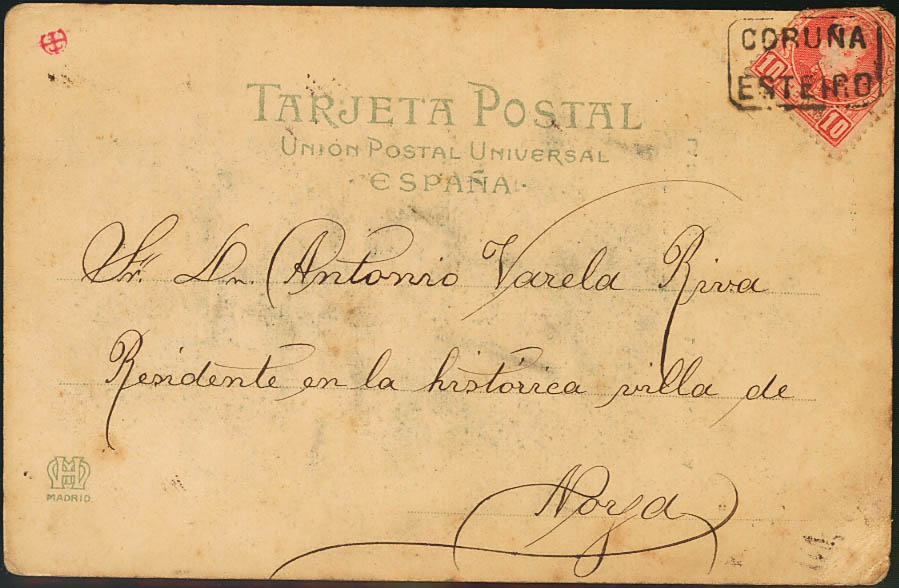 CORUÑA
ESTEIRO
10
10
TARJETA POSTAL
UNIÓN POSTAL UNIVERSAL
ESPAÑA.
Sr. Dn. Antonio Varela Riva
Residente en la histórica villa de
Noya
MADRID